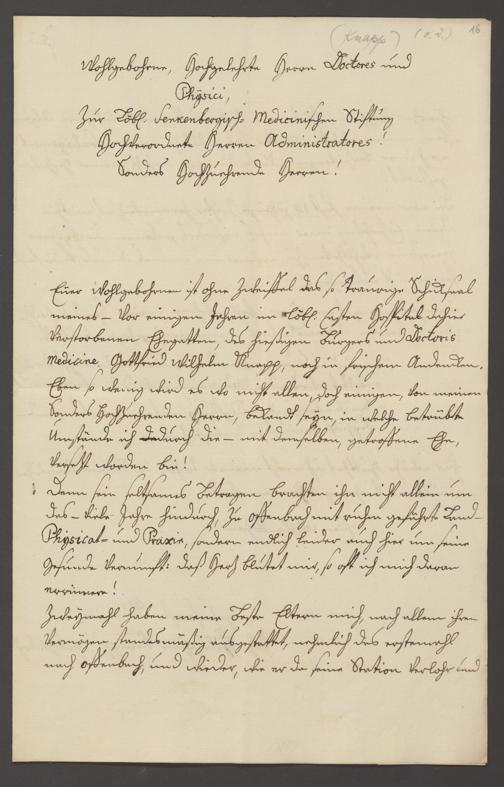 (Knapp) (o. D.) 16
Wohlgebohrne, Hochgelehrte Herrn Doctores und
Physici,
Zur Löbl. Senkenbergisch. Medicinischen Stiftung
Hochverordnete Herren Administratores!
Sonders Hochzuehrende Herren!
Euer Wohlgebohrnen ist ohne Zweiffel das so traurige Schicksaal
meines – vor einigen Jahren im Löbl. Hospital dahier
verstorbenen Ehegatten, des hiesigen Bürgers und Doctoris
Medicine, Gottfried Wilhelm Knapp, noch in frischem Andenken.
Eben so wenig wird es wo nicht allen, doch einigen, von meinen
Sonders Hochzuehrenden Herrn, bekandt seyn, in welche betrübte
Umstände ich dadurch die – mit demselben, getroffene Ehe,
versetzt worden bin!
Denn sein seltsames Betragen brachten ihn nicht allein um
das – viele Jahre hindurch, zu Offenbach mit ruhm geführte Land-
Physicat- und Praxin, sondern endlich leider auch hier um seine
gesunde Vernunft: daß Hertz blutet mir, so oft ich mich daran
errinnere!
Zweymahl haben meine beste Eltern mich, nach allem ihren
Vermögen standesmäßig ausgestattet, nehmlich das erstemahl
nach Offenbach, und wieder, wie er da seine Station verlohr und